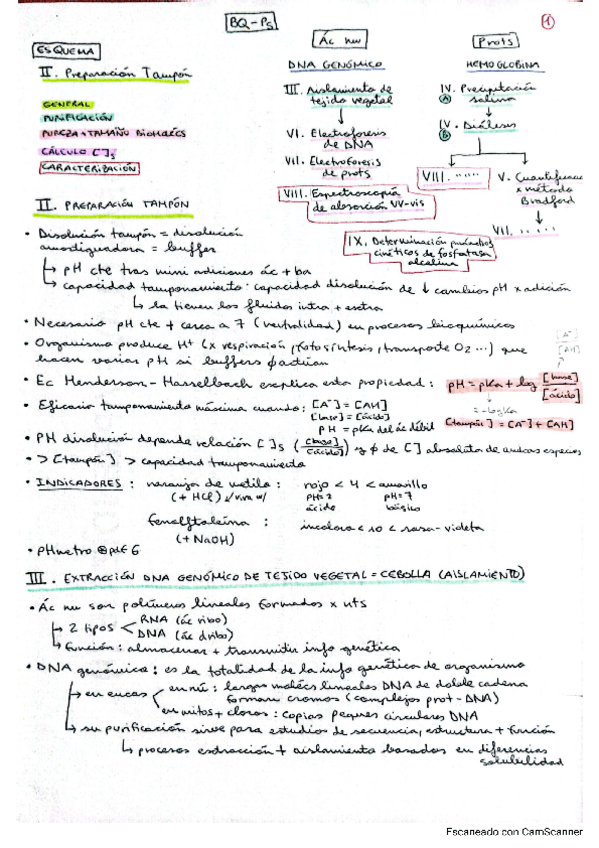 BQ-Ps
1
ESQUEMA
Ác nu
Prots
DNA GENÓMICO
HEMOGLOBINA
II. Preparación Tampón
III. Aislamiento de tejido vegetal
IV. Precipitación salina
A
GENERAL
PURIFICACIÓN
PUREZA + TAMAÑO BIOMOLECS
CÁLCULO [ ]s
CARACTERIZACIÓN
VI. Electroforesis de DNA
IV. Diálisis
B
VII. Electroforesis de prots
VIII. ·····
V. Cuantificac x método Bradford
VIII. Espectroscopía de absorción UV-vis
VII. ·····
IX. Determinación parámetros cinéticos de fosfatasa alcalina
II. PREPARACIÓN TAMPÓN
• Disolución tampón = disolución amortiguadora = buffer
↳ pH cte tras mini adiciones ác + ba
↳ capacidad tamponamiento: capacidad disolución de ↓ cambios pH x adición
↳ la tienen los fluidos intra + extra
• Necesario pH cte + cerca a 7 (neutralidad) en procesos bioquímicos
• Organismo produce H⁺ (x respiración, fotosíntesis, transporte O₂ ...) que
hacen variar pH si buffers ∅ actúan
[A⁻]
[AH]
• Ec Henderson-Hasselbach explica esta propiedad: pH = pKa + log [base]/[ácido]
= -logKa
• Eficacia tamponamiento máxima cuando: [A⁻] = [AH]
[base] = [ácido]
pH = pKa del ác débil
[tampón] = [A⁻] + [AH]
• PH disolución depende relación [ ]s ([base]/[ácido]) y ∅ de [ ] absoluta de ambas especies
• > [tampón] > capacidad tamponamiento
• INDICADORES: naranja de metilo: rojo < 4 < amarillo
(+ HCl)
PH=2
PH=7
ácido
básico
fenolftaleína: incolora < 10 < rosa-violeta
(+ NaOH)
• PHmetro
III. EXTRACCIÓN DNA GENÓMICO DE TEJIDO VEGETAL = CEBOLLA (AISLAMIENTO)
• Ác nu son polímeros lineales formados x nts
↳ 2 tipos < RNA (ác ribo)
DNA (ác dribo)
↳ función: almacenar + transmitir info genética
• DNA genómico: es la totalidad de la info genética de organismo
↳ en eucas < en nú: largas molécs lineales DNA de doble cadena
forman cromos (complejos prot-DNA)
en mitos + cloros: copias peques circulares DNA
↳ su purificación sirve para estudios de secuencia, estructura + función
↳ procesos extracción + aislamiento basados en diferencias
solubilidad
Escaneado con CamScanner